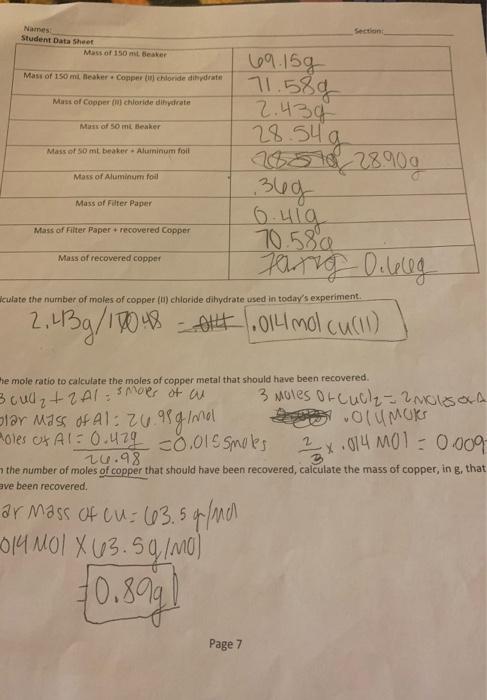 Names:
Section:
Student Data Sheet
Mass of 150 mL Beaker 69.15g
Mass of 150 mL Beaker + Copper (II) chloride dihydrate 71.58g
Mass of Copper (II) chloride dihydrate 2.43g
Mass of 50 mL Beaker 28.54g
Mass of 50 mL beaker + Aluminum foil 28.90g
Mass of Aluminum foil .36g
Mass of Filter Paper 0.41g
Mass of Filter Paper + recovered Copper 70.58g
Mass of recovered copper 0.66g
lculate the number of moles of copper (II) chloride dihydrate used in today's experiment.
2.43g/170.48 = .014 .014 mol cu(II)
he mole ratio to calculate the moles of copper metal that should have been recovered.
3 cucl2 + 2Al = 3 moles of cu
3 moles of CuCl2 = 2 moles of A
olar mass of Al: 26.98g/mol
.014 moles
oles of Al = 0.42g = 0.0155moles
26.98
2/3 x .014 mol = 0.009
n the number of moles of copper that should have been recovered, calculate the mass of copper, in g, that
ave been recovered.
ar mass of cu = 63.5 g/mol
014 mol x 63.5g/mol
= 0.89g
Page 7